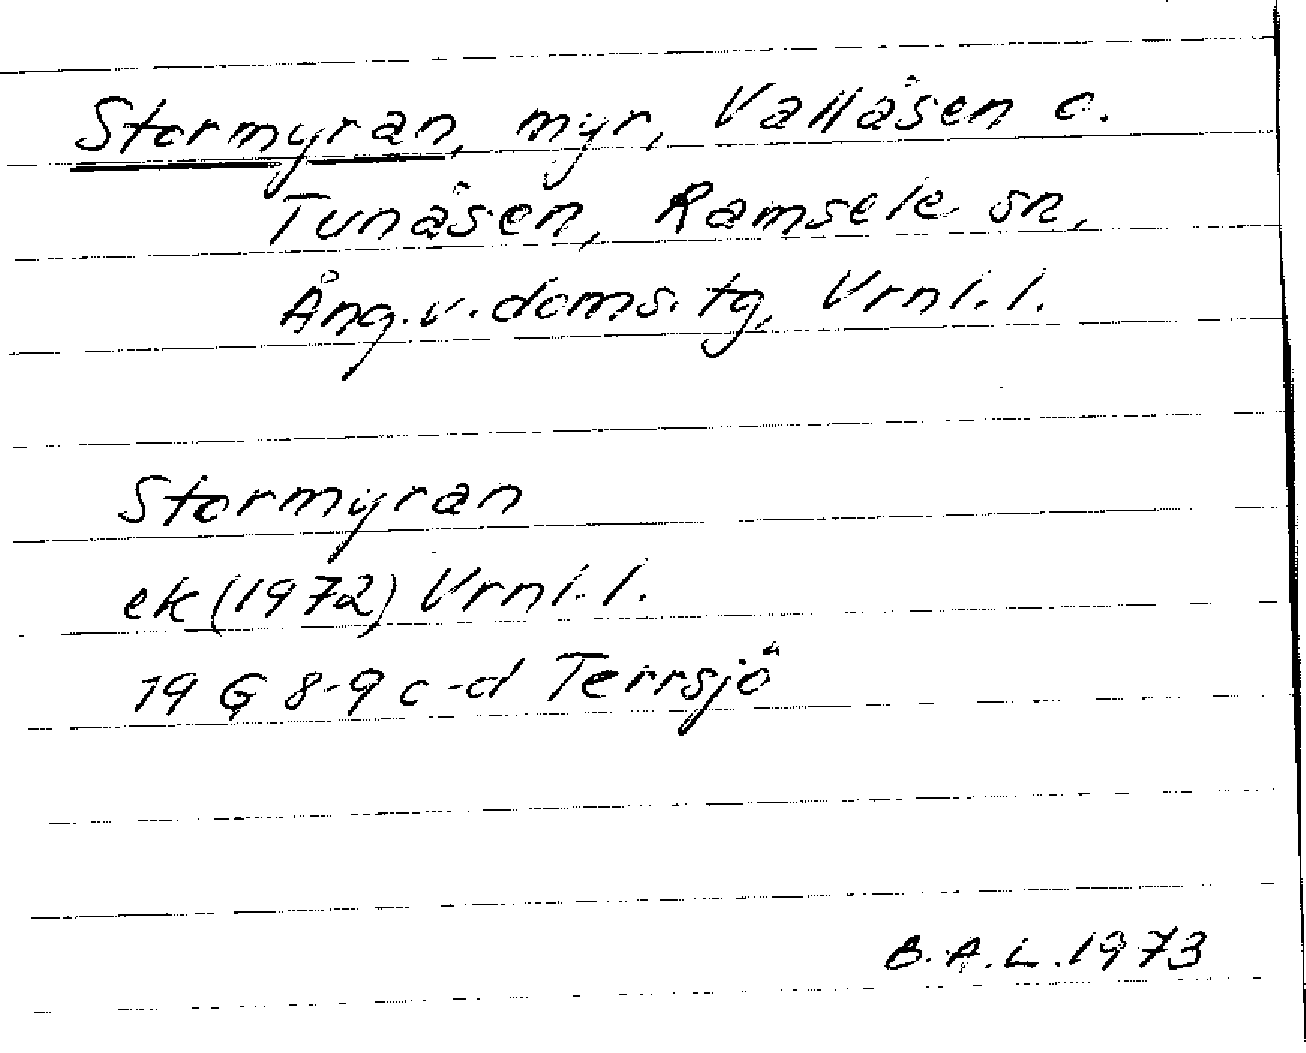 Stormyran, myr, Vallåsen o.
Tunåsen, Ramsele sn,
Ång.v.doms.tg, Vrnl.l.
Stormyran
ek (1972) Vrnl.l.
19 G 8-9 c-d Terrsjö
B.A.L. 1973